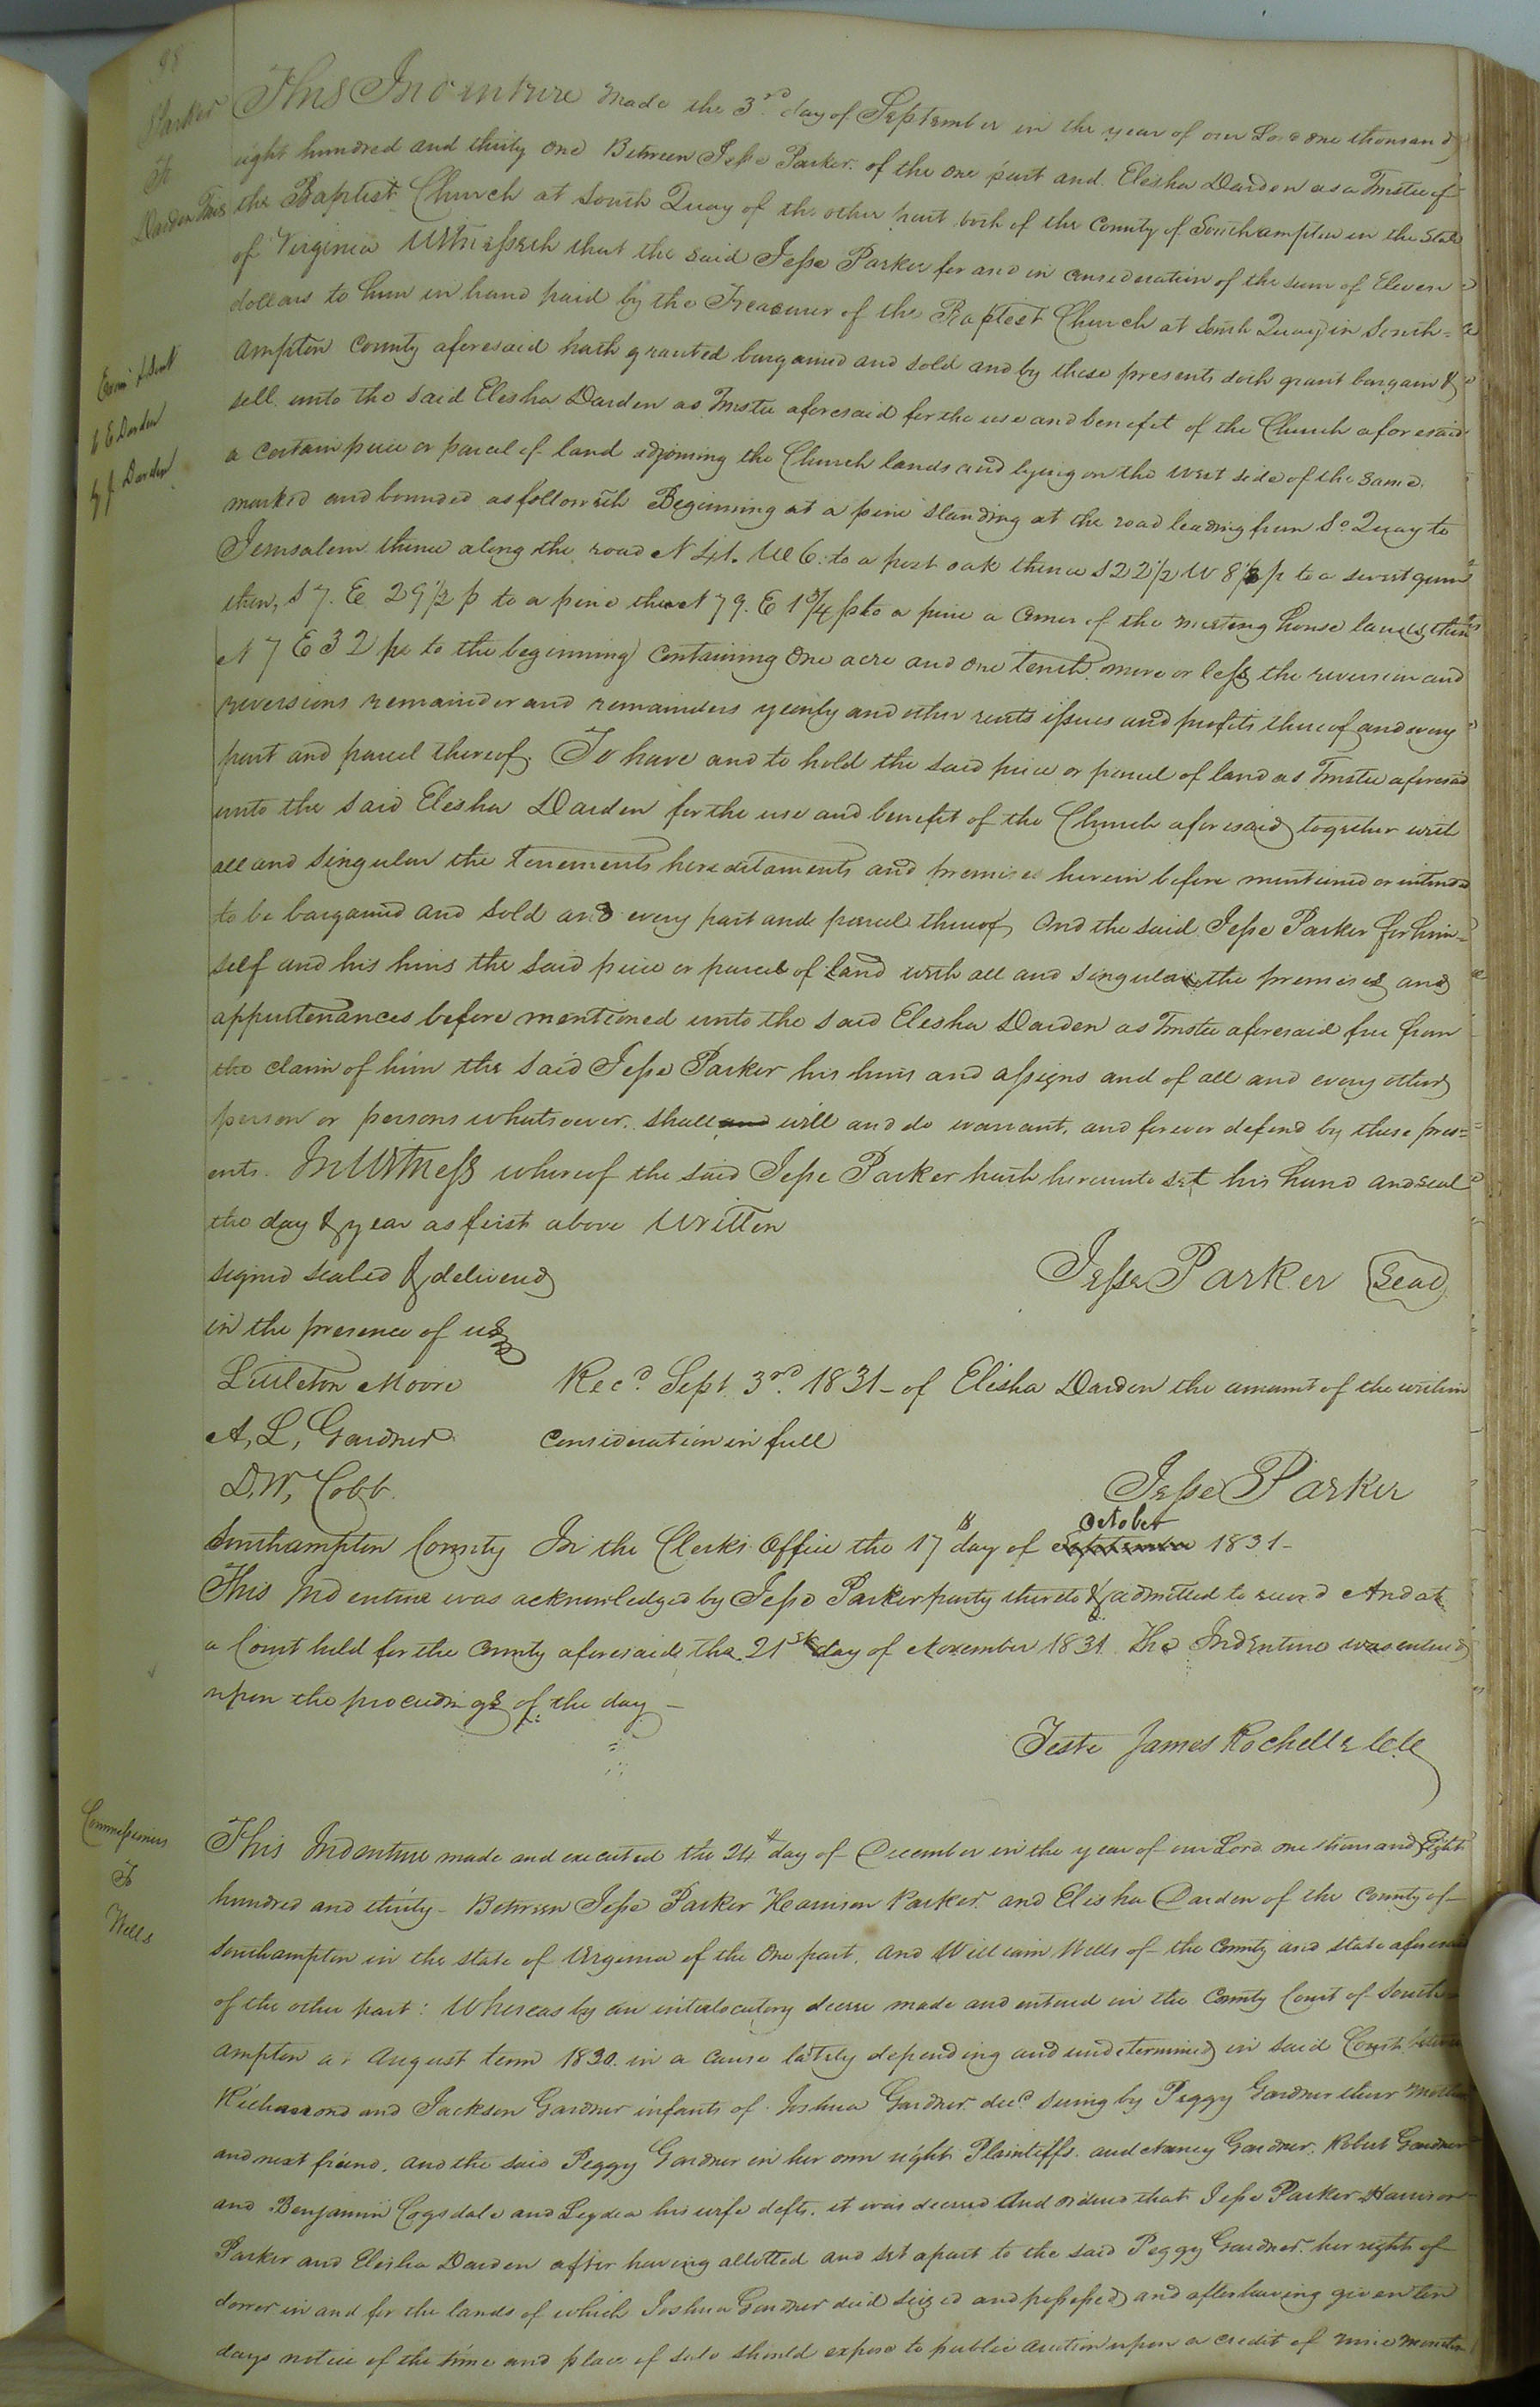 98
Parker
To
Darden Trus
This Indenture made the 3rd day of September in the year of our Lord one thousand
eight hundred and thirty one Between Jesse Parker of the one part and Elesha Darden as a Trustee of
the Baptist Church at South Quay of the other part both of the County of Southampton in the State
of Virginia Witnesseth that the said Jesse Parker for and in consideration of the sum of Eleven
dollars to him in hand paid by the Treasurer of the Baptist Church at South Quay in South=
ampton County aforesaid hath granted bargained and sold and by these presents doth grant bargain &
sell unto the said Elesha Darden as Trustee aforesaid for the use and benefit of the Church aforesaid
a certain piece or parcel of land adjoining the Church lands and lying on the west side of the same
marked and bounded as followeth Beginning at a pine standing at the road leading from So Quay to
Jerusalem thence along the road N 41. W 6. to a post oak thence S 22 1/2 W 8 1/2 p to a sweet gum
then, S 7. E 29 1/2 p to a pine then N 79. E 1 3/4 p to a pine a corner of the meeting house lands, thence
N 7 E 32 po to the beginning containing one acre and one tenth more or less the reversion and
reversions remainder and remainders yearly and other rents issues and profits thereof and every
part and parcel thereof. To have and to hold the said piece or parcel of land as Trustee aforesaid
unto the said Elesha Darden for the use and benefit of the Church aforesaid together with
all and singular the Tenements hereditaments and premises herein before mentioned or intended
to be bargained and sold and every part and parcel thereof And the said Jesse Parker for him=
self and his heirs the said piece or parcel of land with all and singular the premises and
appurtenances before mentioned unto the said Elesha Darden as Trustee aforesaid free from
the claim of him the said Jesse Parker his heirs and assigns and of all and every other
person or persons whatsoever. shall and will and do warrant, and forever defend by these pres=
ents. In Witness whereof the said Jesse Parker hath hereunto set his hand and seal
the day & year as first above Written
signed sealed & delivered
Jesse Parker Seal
in the presence of us
Littleton Moore
A, L, Gardner
D. W, Cobb.
Recd. Sept. 3rd. 1831 - of Elisha Darden the amount of the within
consideration in full
Jesse Parker
Southampton County In the Clerks Office the 17th day of September October 1831 -
This Indenture was acknowledged by Jesse Parker party thereto & admitted to record And at
a Court held for the County aforesaid the 21st day of November 1831. The Indenture was entered
upon the proceedings of the day -
Teste James Rochelle CC
Commissioners
To
Wells
This Indenture made and executed the 24th day of December in the year of our Lord one thousand Eight
hundred and thirty - Between Jesse Parker Harrison Parker and Elisha Darden of the County of
Southampton in the state of Virginia of the one part, and William Wells of the County and state aforesaid
of the other part: Whereas by an interlocutory decree made and entered in the County Court of South
ampton at August term 1830. in a cause lately depending and undetermined in said Court between
Richmond and Jackson Gardner infants of Joshua Gardner decd suing by Peggy Gardner their mother
and next friend, and the said Peggy Gardner in her own right Plaintiffs. and Nancy Gardner, Robert Gardner
and Benjamin Cogsdale and Lydea his wife defts. it was decreed And ordered that Jesse Parker Harrison
Parker and Elesha Darden after having allotted and set apart to the said Peggy Gardner her right of
dower in and for the lands of which Joshua Gardner died seized and possessed and after having given ten
days notice of the time and place of sale should expose to public auction upon a credit of nine months